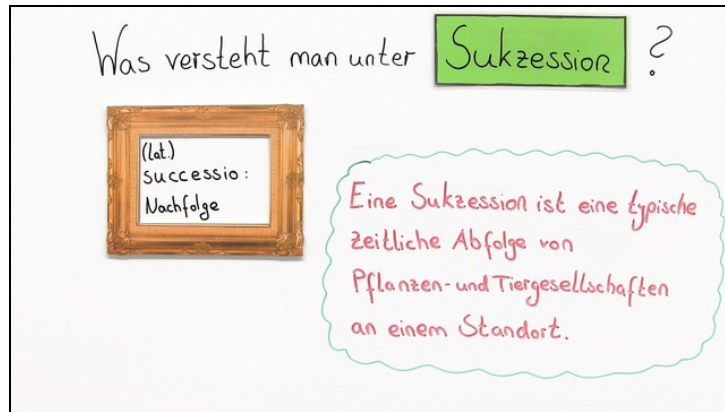 Was versteht man unter Sukzession ?
(lat.)
successio:
Nachfolge
Eine Sukzession ist eine typische
zeitliche Abfolge von
Pflanzen- und Tiergesellschaften
an einem Standort.